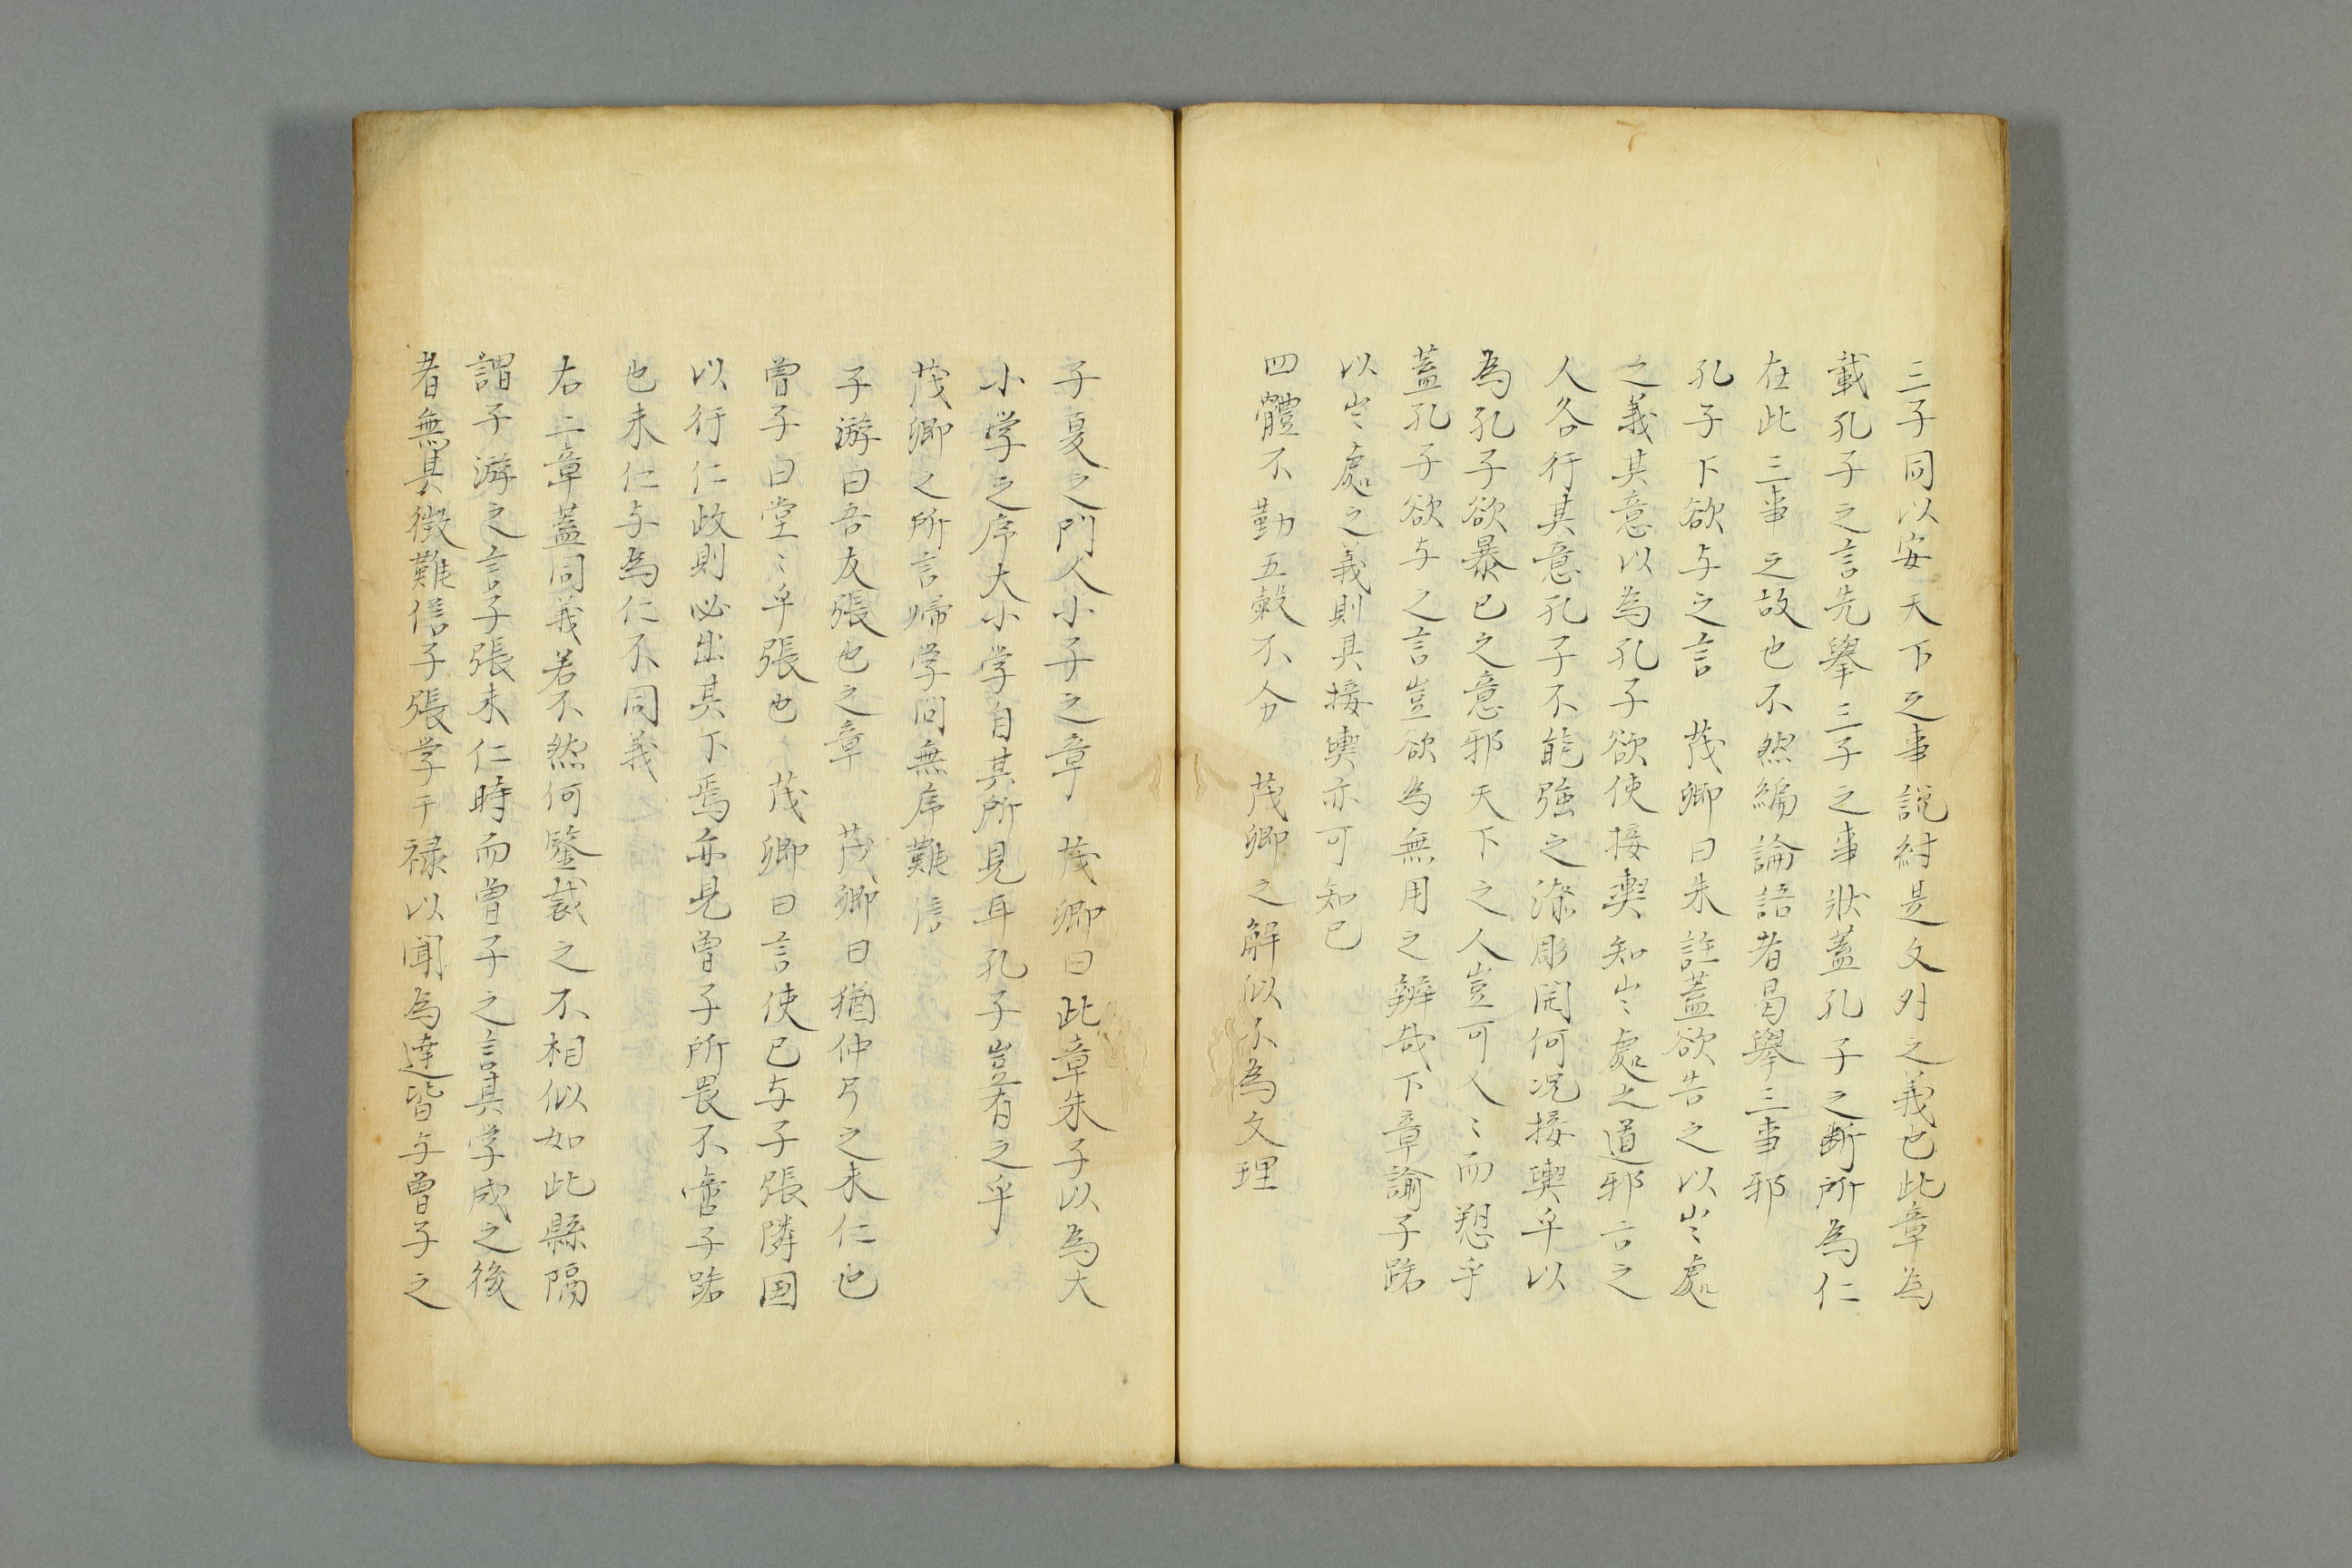 三子同以安天下之事説紂是文外之義也此章為
載孔子之言先舉三子之事狀蓋孔子之断所為仁
在此三事之故也不然編論語者曷舉三事邪
孔子下欲与之言　茂卿曰朱註蓋欲告之以出〻處
之義其意以為孔子欲使接輿知出〻處之道邪言之
人各行其意孔子不能強之漆彫開何况接輿乎以
為孔子欲暴已之意邪天下之人豈可人〻而懇乎
蓋孔子欲与之言豈欲為無用之辨哉下章諭子路
以出〻處之義則其接輿亦可知已
四體不勤五穀不分　茂卿之解似不為文理
子夏之門人小子之章　茂卿曰此章朱子以為大
小学之序大小学自其所見耳孔子豈有之乎
茂卿之所言帰学問無序難信
子游曰吾友張也之章　茂卿曰猶仲弓之未仁也
曽子曰堂〻乎張也　茂卿曰言使已与子張隣国
以行仁政則必出其下焉亦見曽子所畏不啻子路
也未仁与為仁不同義
右二章蓋同義若不然何鑒裁之不相似如此縣隔
謂子游之言子張未仁時而曽子之言其学成之後
者無其徴難信子張学干禄以聞為達皆与曽子之